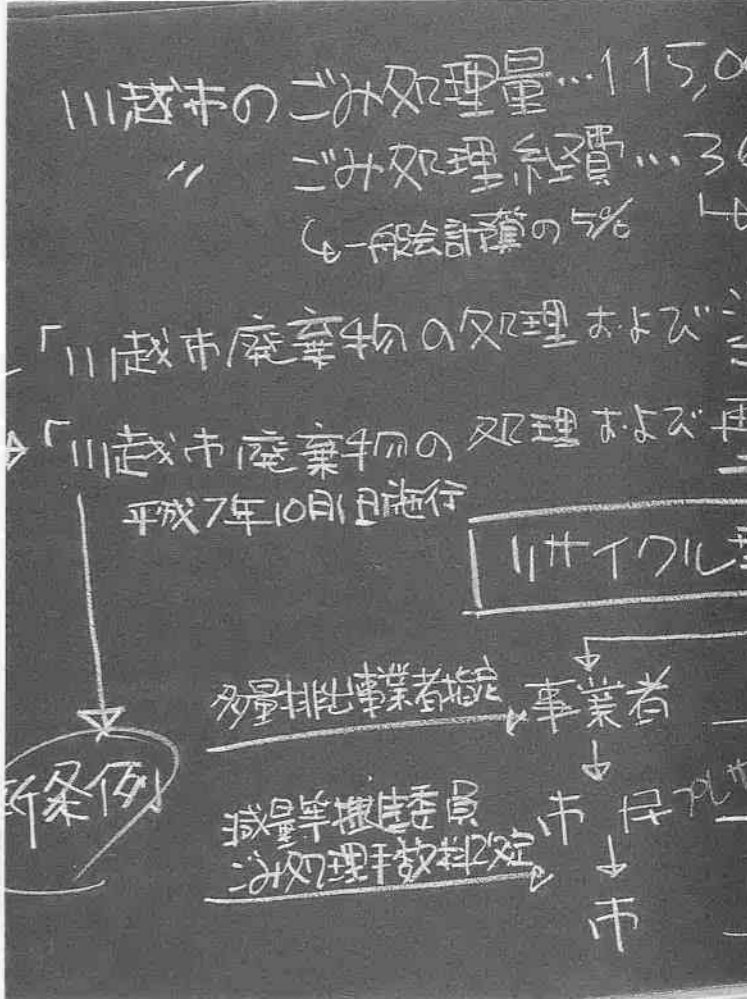 川越市のごみ処理量…115,0
〃 ごみ処理経費…3
↳一般会計予算の5%
「川越市廃棄物の処理および
「川越市廃棄物の処理および再
平成7年10月1日施行
リサイクル型
多量排出事業者指定→事業者
新条例
減量等推進委員
ごみ処理手数料改定→市民プレサ
市